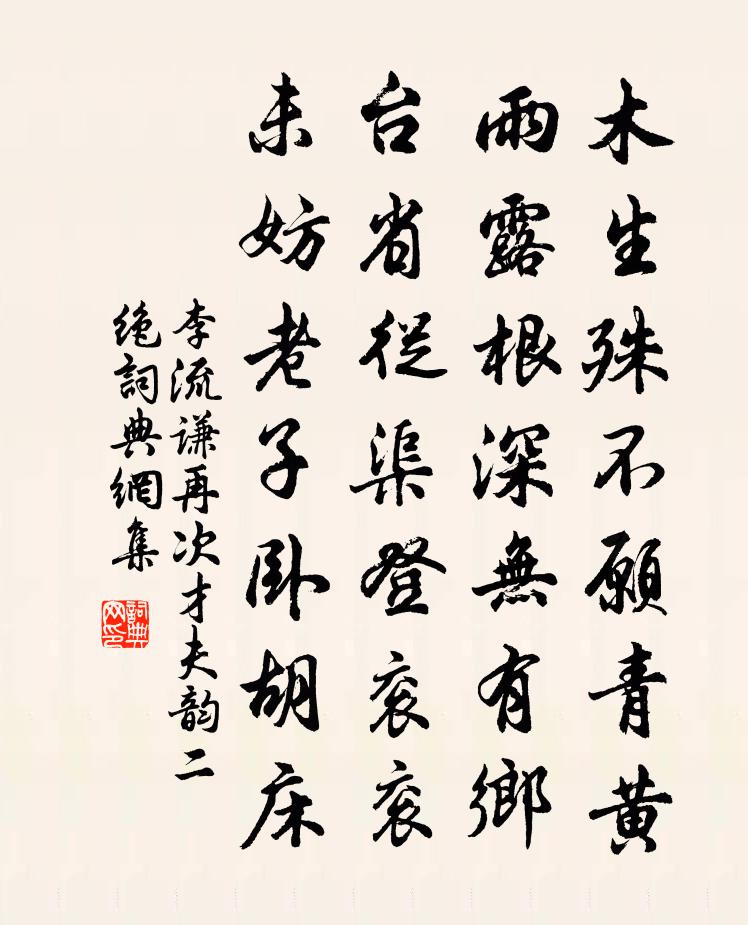 木生殊不願青黃
雨露根深無有鄉
台省從渠登衮衮
未妨老子卧胡床
李流谦再次才夫韵二
绝詞典網集
詞典网印